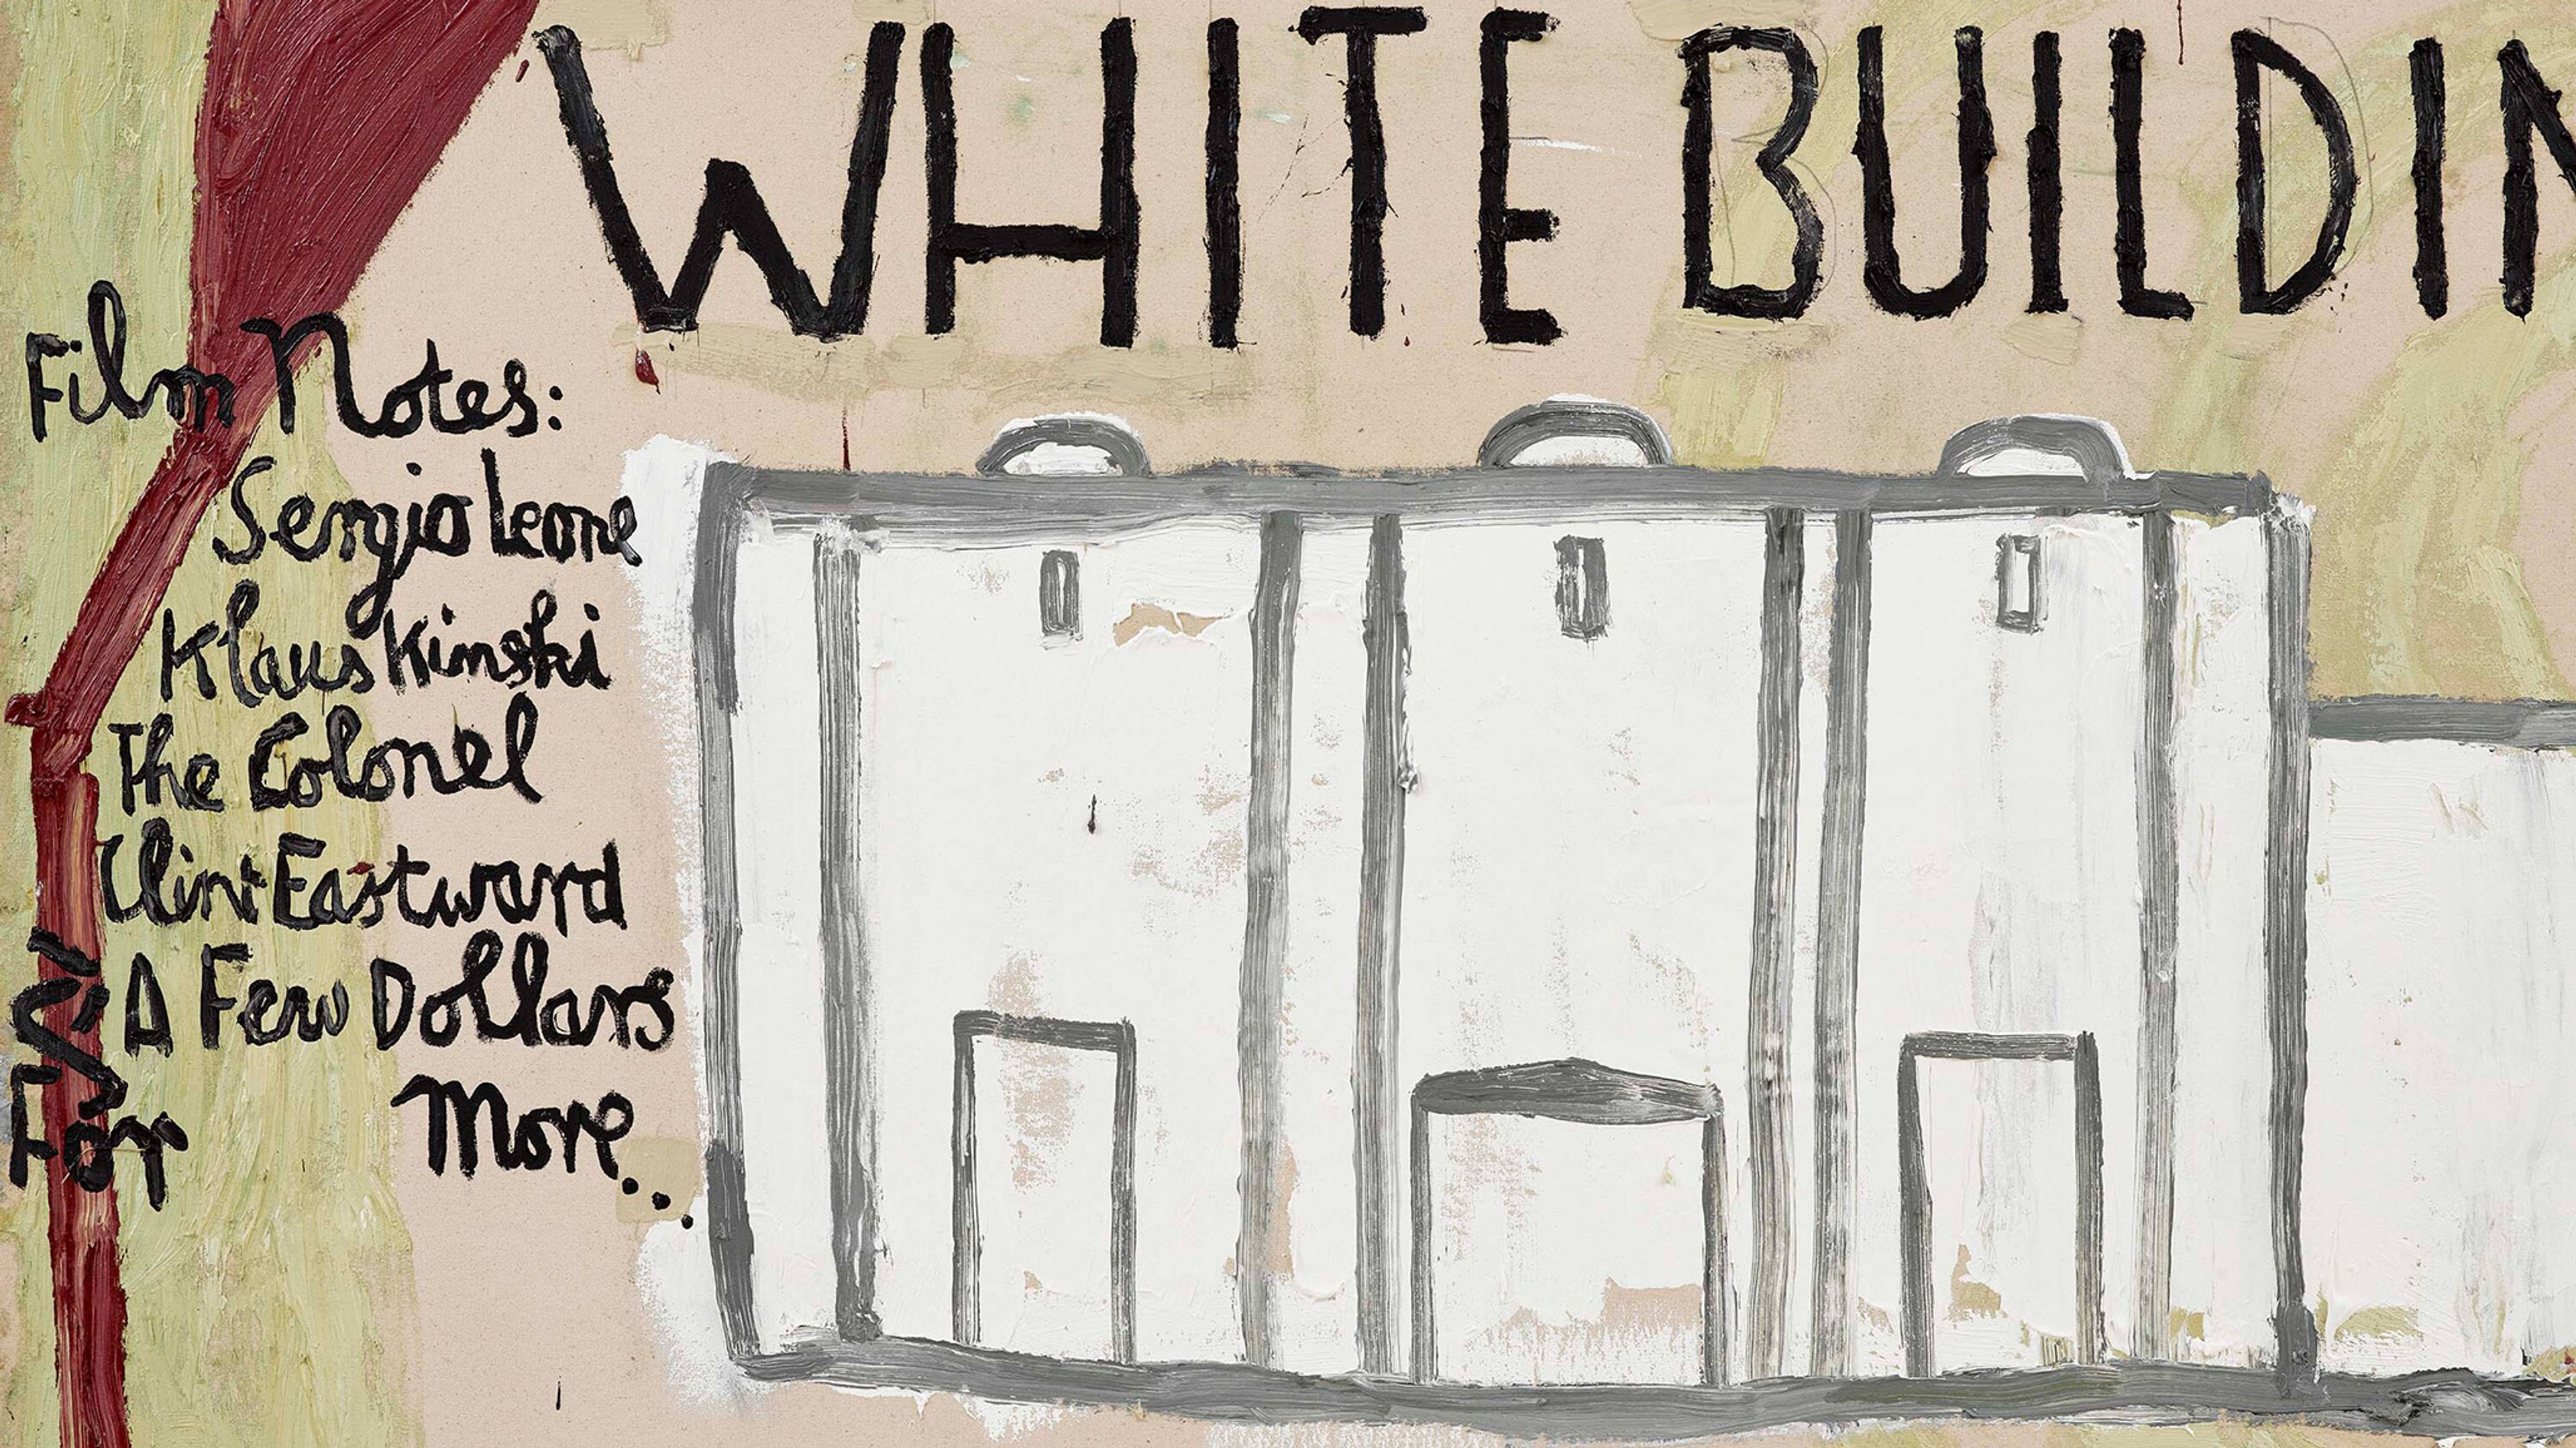 WHITE BUILDIN
Film Notes:
Sergio Leone
Klaus Kinski
The Colonel
Clint Eastward
A Few Dollars
For More...